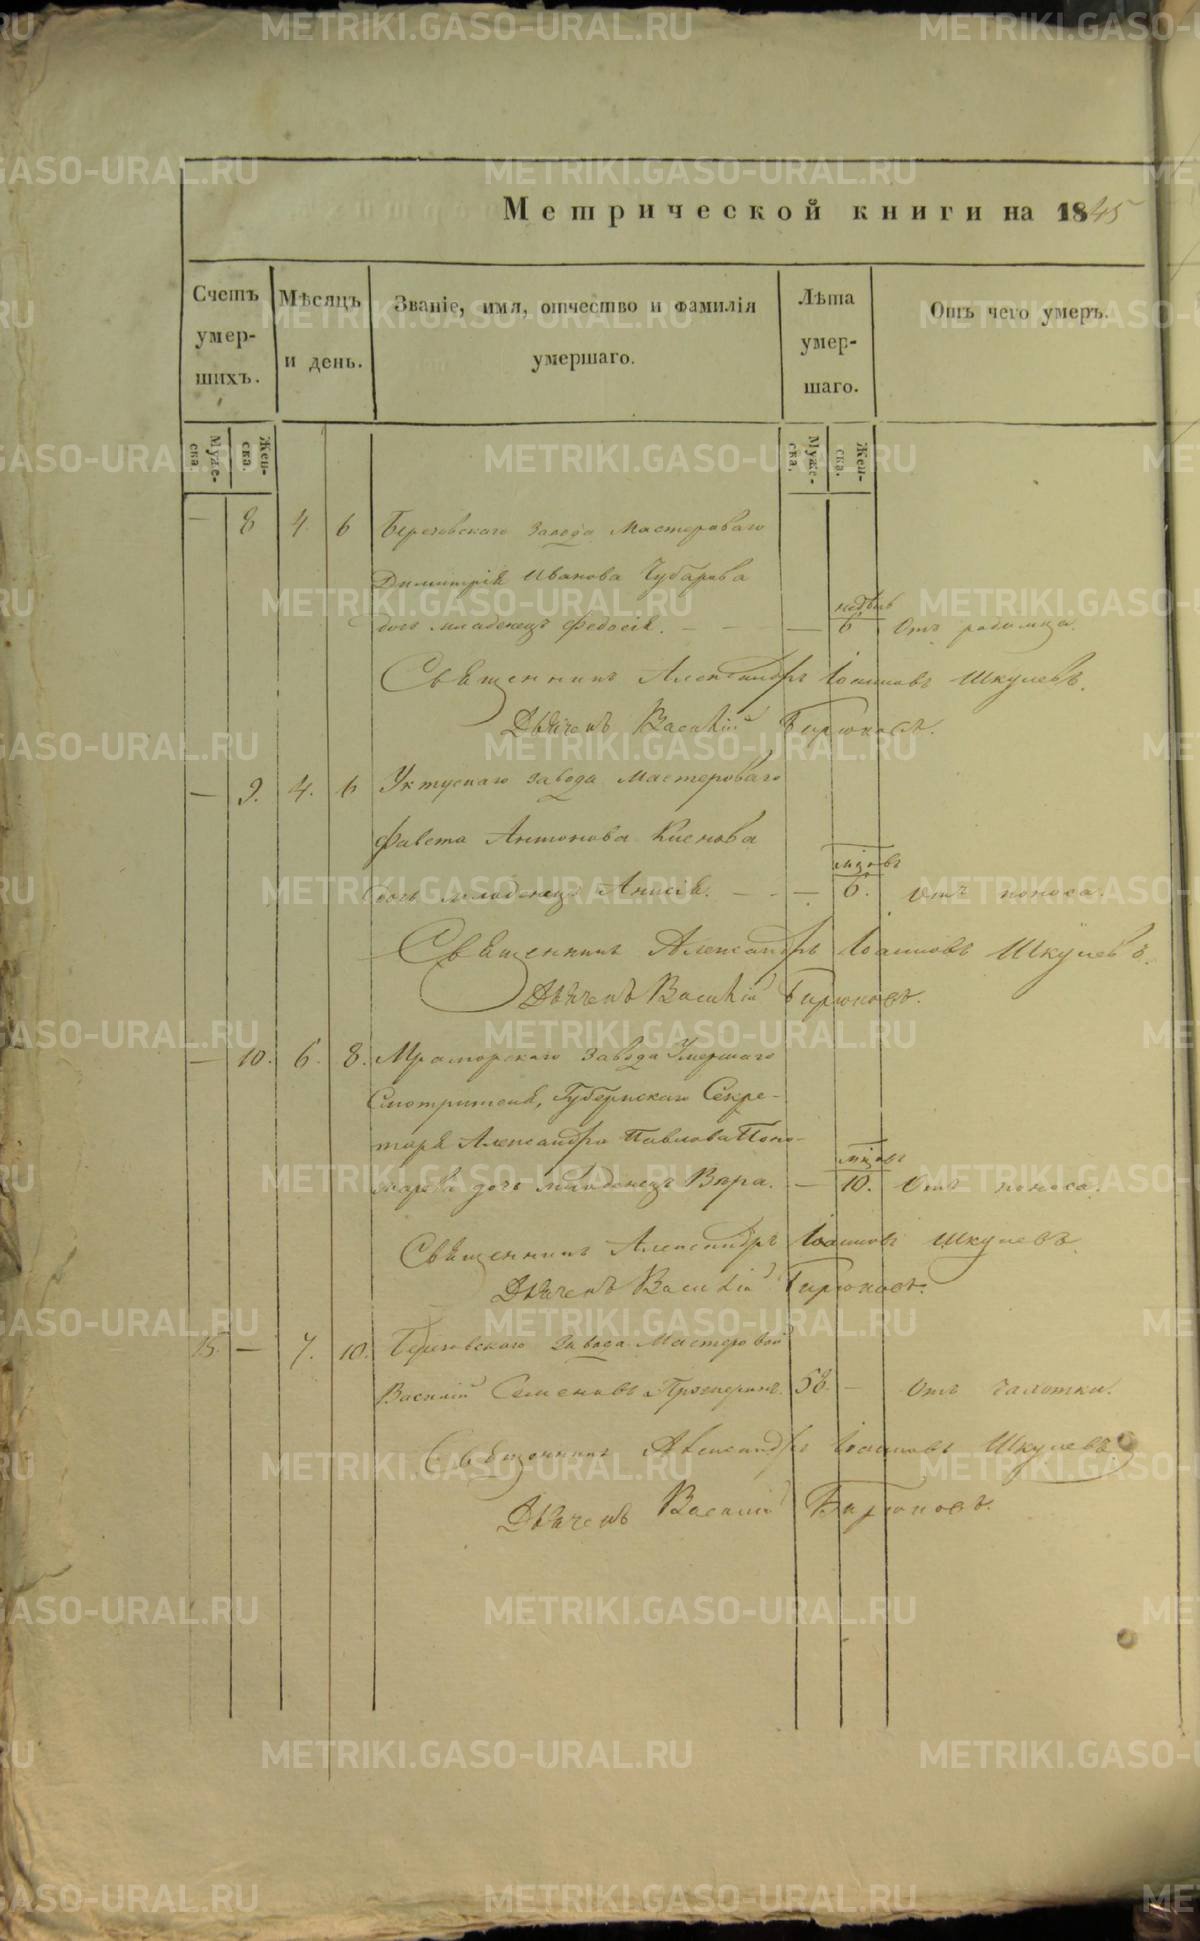 Метрической книги на 1845
Счетъ умер-шихъ.
Мѣсяцъ и день.
Званіе, имя, отчество и фамилія умершаго.
Лѣта умер-шаго.
Отъ чего умеръ.
Муже-ска.
Жен-ска.
Муже-ска.
Жен-ска.
— 8 4. 6 Березовскаго завода Мастероваго
Димитрія Иванова Чубарова
дочь младенецъ Федосія. — — — 6 Отъ родимца.
Священникъ Александръ Іоанновъ Шкулевъ.
Дьячекъ Василій Бирюковъ.
— 9. 4. 6 Уктускаго завода Мастероваго
Антонова
дочь младенецъ Анисія. — — — мцовъ 6. Отъ поноса.
Священникъ Александръ Іоанновъ Шкулевъ.
Дьячекъ Василій Бирюковъ.
— 10. 6. 8. Мраморскаго завода Умершаго
Смотрителя, Губернскаго Секре-
таря Александра Павлова Поно-
марева дочь младенецъ Вѣра. — мцовъ 10. Отъ поноса.
Священникъ Александръ Іоанновъ Шкулевъ.
Дьячекъ Василій Бирюковъ.
15. — 7. 10. Березовскаго завода Мастеровой
Василій Семеновъ 58. — Отъ чахотки.
Священникъ Александръ Іоанновъ Шкулевъ.
Дьячекъ Василій Бирюковъ.
METRIKI.GASO-URAL.RU